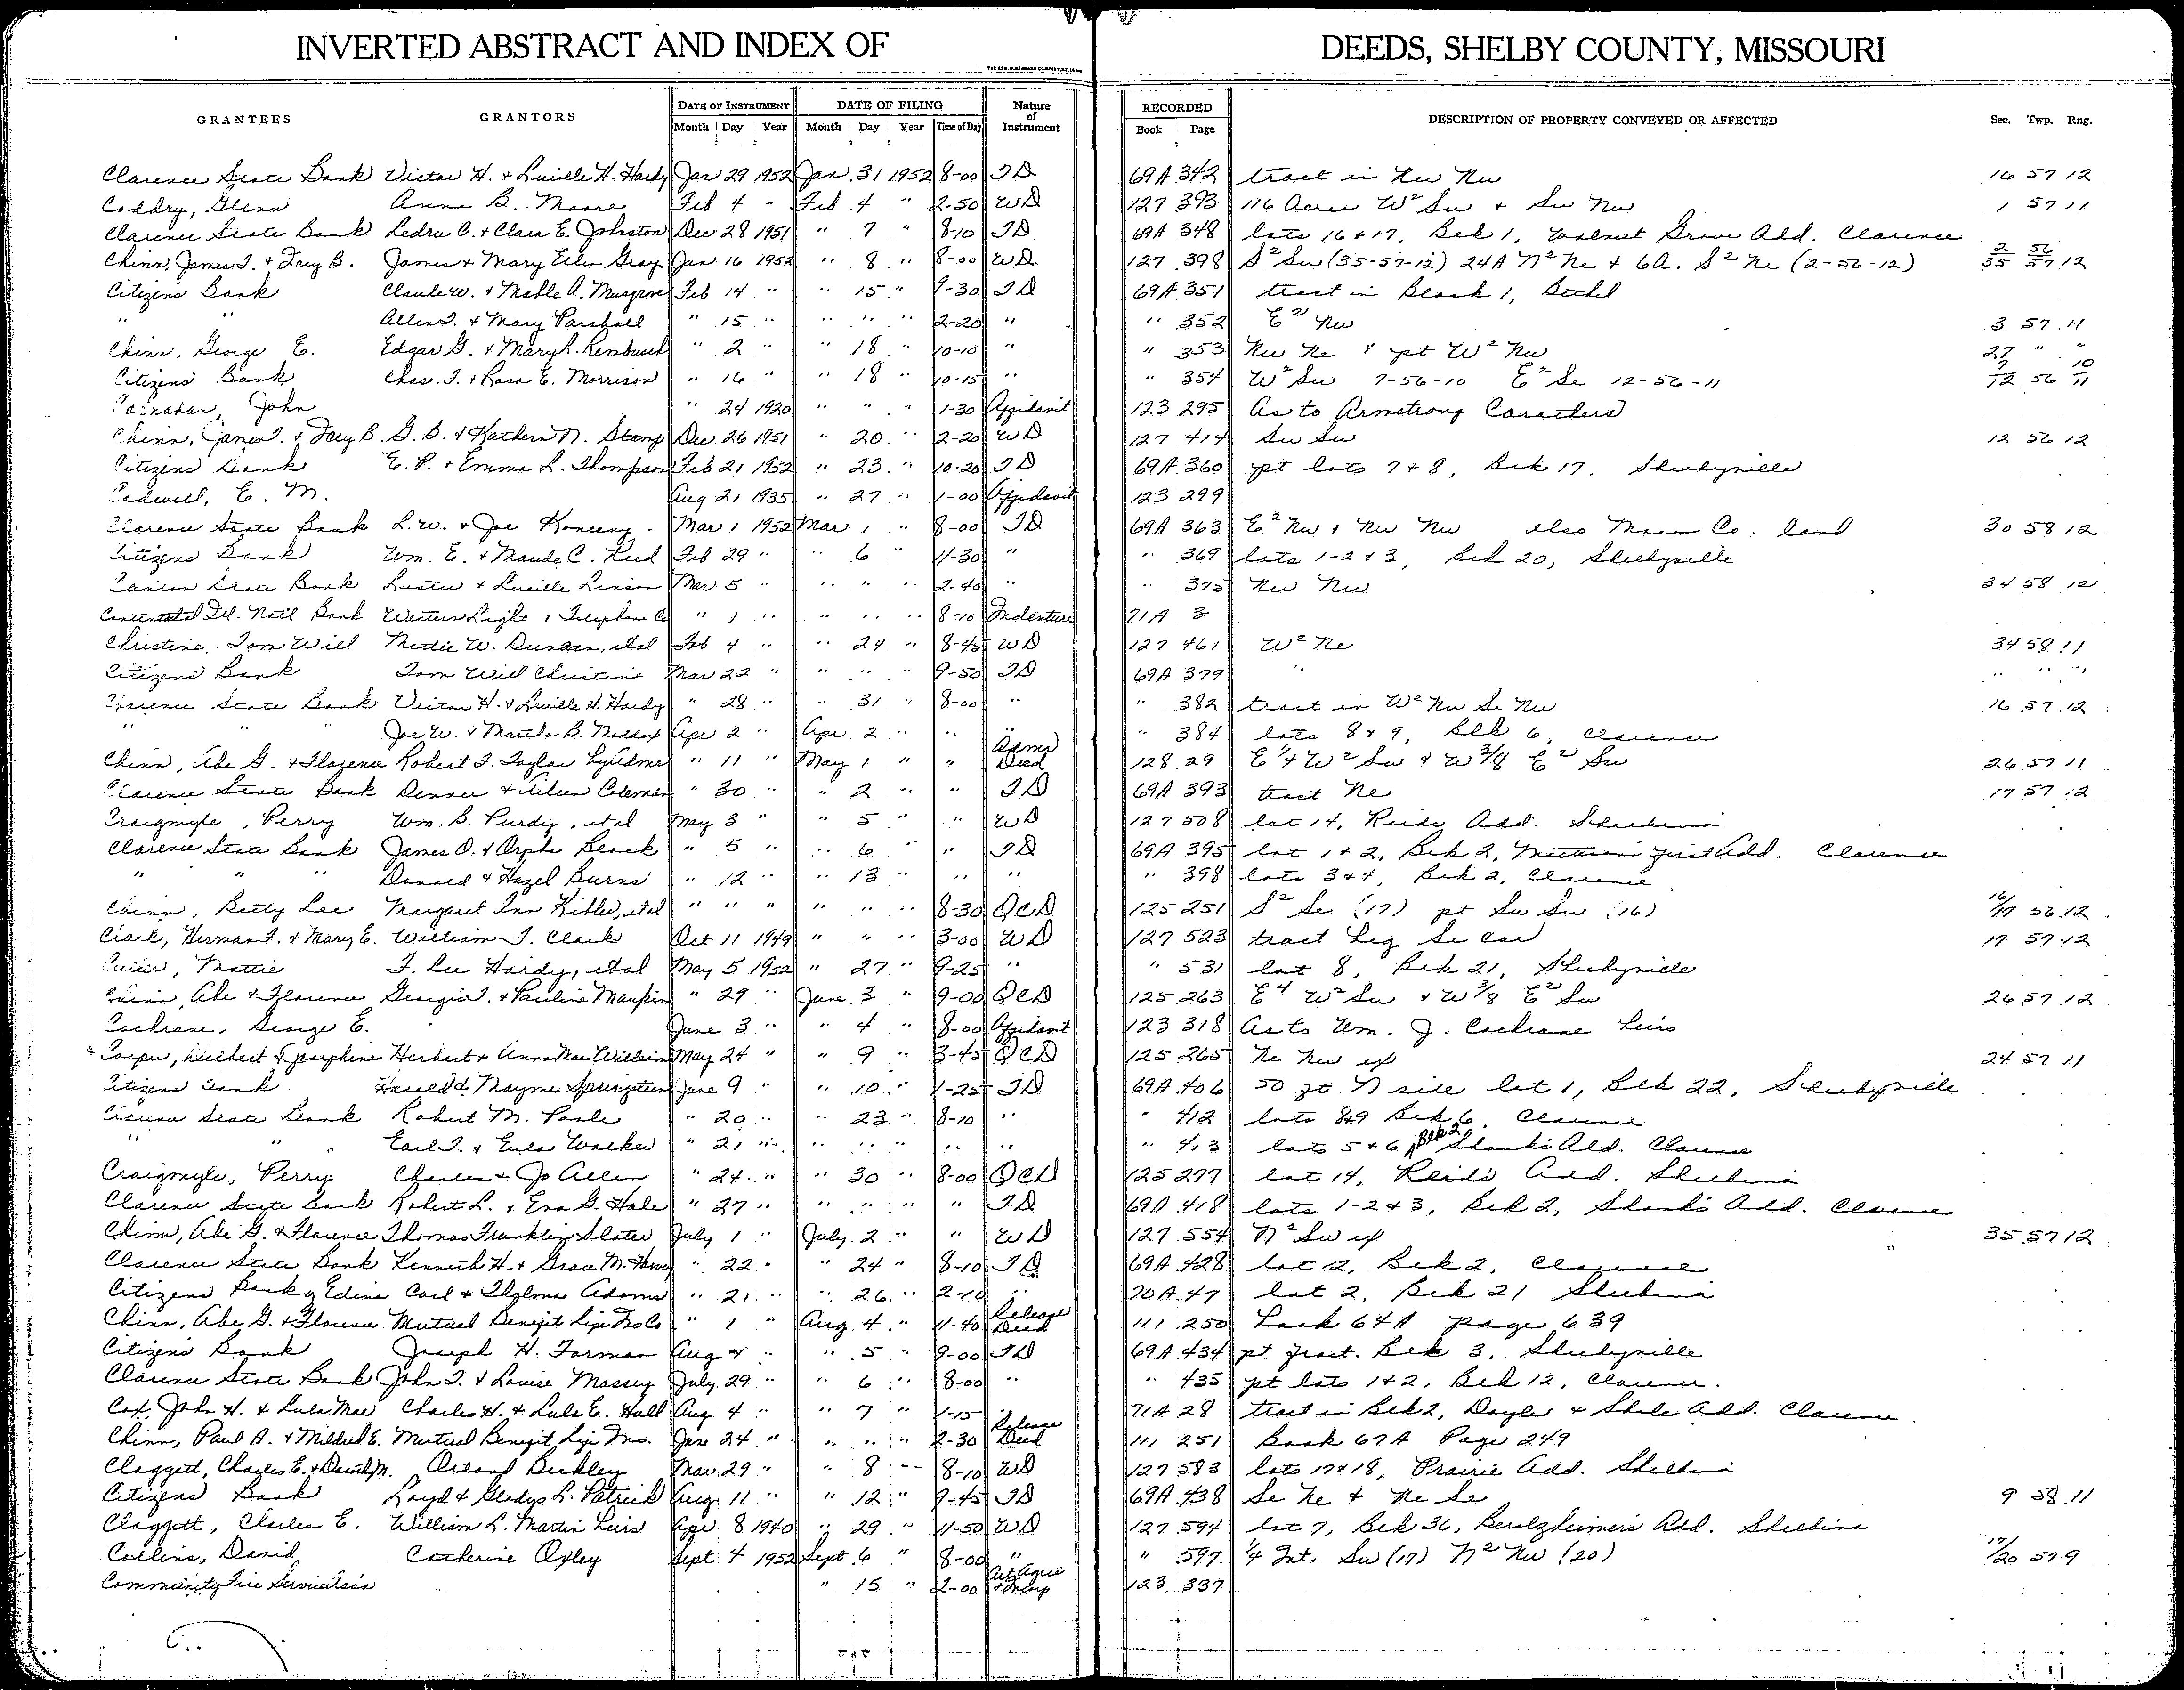 INVERTED ABSTRACT AND INDEX OF DEEDS, SHELBY COUNTY, MISSOURI
GRANTEES GRANTORS DATE OF INSTRUMENT DATE OF FILING Nature of Instrument RECORDED DESCRIPTION OF PROPERTY CONVEYED OR AFFECTED Sec. Twp. Rng.
Month Day Year Month Day Year Time of Day Book Page
Clarence State Bank Victor H. & Lucille H. Hardy Jan 29 1952 Jan. 31 1952 8-00 TD 69A 342 tract in Nw Nw 16 57 12
Coddry, Glenn Anna B. Moore Feb 4 " Feb. 4 " 2-50 WD 127 393 116 Acres W² Sw & Sw Nw 1 57 11
Clarence State Bank Ledru C. & Clara E. Johnston Dec 28 1951 " 7 " 8-10 TD 69A 348 lots 16 & 17, Blk 1, Walnut Grove Add. Clarence
Chinn, James T. & Fery B. James & Mary Ellen Gray Jan 16 1952 " 8 " 8-00 WD 127 398 S² Sw (35-57-12) 24A N² Ne & 6A. S² Ne (2-56-12) 2/35 56/57 12
Citizens Bank Claude W. & Mable A. Musgrove Feb 14 " " 15 " 9-30 TD 69A 351 tract in Block 1, Bethel
" " Allen T. & Mary Parshall " 15 " " " " 2-20 " " 352 E² Nw 3 57 11
Chinn, George E. Edgar G. & Mary L. Rembusch " 2 " " 18 " 10-10 " " 353 Nw Ne & pt W² Nw 27 " "
Citizens Bank Chas. T. & Rosa E. Morrison " 16 " " 18 " 10-15 " " 354 W² Sw 7-56-10 E² Se 12-56-11 7/12 56 10/11
Carnahan, John " 24 1920 " " " 1-30 Affidavit 123 295 As to Armstrong Carothers
Chinn, James T. & Fery B. G. B. & Kathern N. Stamp Dec. 26 1951 " 20 " 2-20 WD 127 414 Sw Sw 12 56 12
Citizens Bank E. P. & Emma L. Thompson Feb 21 1952 " 23 " 10-20 TD 69A 360 pt lots 7 & 8, Blk 17, Shelbyville
Cadwell, E. M. Aug 21 1935 " 27 " 1-00 Affidavit 123 299
Clarence State Bank L. W. & Joe Koneeny Mar 1 1952 Mar 1 " 8-00 TD 69A 363 E² Nw & Nw Nw also Macon Co. land 30 58 12
Citizens Bank Wm. E. & Maude C. Reed Feb 29 " " 6 " 11-30 " " 369 lots 1-2 & 3, Blk 20, Shelbyville
Canton State Bank Lester & Lucille Linson Mar. 5 " " " " 2-40 " " 375 Nw Nw 34 58 12
Continental Ill. Natl Bank Western Light & Telephone Co " 1 " " " " 8-10 Indenture 71A 3
Christine, Tom Will Mettie W. Duncan, etal Feb 4 " " 24 " 8-45 WD 127 461 W² Ne 34 58 11
Citizens Bank Tom Will Christine Mar 22 " " " " 9-50 TD 69A 379 " " " "
Clarence State Bank Victor H. & Lucille H. Hardy " 28 " " 31 " 8-00 " " 382 tract in W² Nw Se Nw 16 57 12
" " Joe W. & Martha B. Maddox Apr 2 " Apr. 2 " " " " 384 lots 8 & 9, Blk 6, Clarence
Chinn, Abe G. & Florence Robert T. Taylor by Admr " 11 " May 1 " " Admr Deed 128 29 E ¼ W² Sw & W ⅜ E² Sw 26 57 11
Clarence State Bank Denver & Aileen Coleman " 30 " " 2 " " TD 69A 393 tract Ne 17 57 12
Craigmyle, Perry Wm. B. Purdy, etal May 3 " " 5 " " WD 127 508 lot 14, Reids Add. Shelbina
Clarence State Bank James O. & Orpha Black " 5 " " 6 " " TD 69A 395 lot 1 & 2, Blk 2, first Add. Clarence
" " " Donald & Hazel Burns " 12 " " 13 " " " " 398 lots 3 & 4, Blk 2, Clarence
Chinn, Betty Lee Margaret Ann Kibler, etal " " " " " " 8-30 QCD 125 251 S² Se (17) pt Sw Sw (16) 16/17 56 12
Clark, Herman T. & Mary E. William T. Clark Oct 11 1949 " " " 3-00 WD 127 523 tract beg Se Cor 17 57 12
Mattie F. Lee Hardy, etal May 5 1952 " 27 " 9-25 " " 531 lot 8, Blk 21, Shelbyville
Chinn, Abe & Florence Georgia T. & Pauline Maupin " 29 " June 3 " 9-00 QCD 125 263 E⁴ W² Sw & W ⅜ E² Sw 26 57 12
Cochrane, George E. June 3 " " 4 " 8-00 Affidavit 123 318 As to Wm. J. Cochrane heirs
Cooper, Delbert & Josephine Herbert & Anna Mae William May 24 " " 9 " 3-45 QCD 125 265 Ne Nw ex 24 57 11
Citizens Bank Harold & Mayme Springsteen June 9 " " 10 " 1-25 TD 69A 406 50 ft N side lot 1, Blk 22, Shelbyville
Clarence State Bank Robert M. Poole " 20 " " 23 " 8-10 " " 412 lots 8&9 Blk 6, Clarence
" " Earl T. & Eula Walker " 21 " " " " " " " 413 lots 5 & 6 Blk 2 Shanks Add. Clarence
Craigmyle, Perry Charles & Jo Allen " 24 " " 30 " 8-00 QCD 125 277 lot 14, Reids Add. Shelbina
Clarence State Bank Robert L. & Eva G. Hale " 27 " " " " " TD 69A 418 lots 1-2 & 3, Blk 2, Shanks Add. Clarence
Chinn, Abe G. & Florence Thomas Franklin Slater July 1 " July 2 " " WD 127 554 N² Sw ex 35 57 12
Clarence State Bank Kenneth H. & Grace M. " 22 " " 24 " 8-10 TD 69A 428 lot 12, Blk 2, Clarence
Citizens Bank of Edina Carl & Thelma Adams " 21 " " 26 " " 70A 47 lot 2, Blk 21 Shelbina
Chinn, Abe G. & Florence Mutual Benefit Life Ins Co " 1 " Aug. 4 " 11-40 Release Deed 111 250 Book 64A page 639
Citizens Bank Joseph H. Forman Aug 4 " " 5 " 9-00 TD 69A 434 pt fract. Blk 3, Shelbyville
Clarence State Bank John T. & Louise Massey July 29 " " 6 " 8-00 " " 435 pt lots 1 & 2, Blk 12, Clarence.
Cox, John H. & Lula Mae Charles H. & Lula E. Hall Aug 4 " " 7 " 1-15 71A 28 tract in Blk 2, Doyle & Add. Clarence.
Chinn, Paul A. & Mildred E. Mutual Benefit Life Ins. June 24 " " " " 2-30 Release Deed 111 251 Book 67A Page 249
Claggett, Charles E. & David M. Orland Buckley Mar. 29 " " 8 " 8-10 WD 127 583 lots 17 & 18, Prairie Add. Shelbina
Citizens Bank Loyd & Gladys L. Patrick Aug. 11 " " 12 " 9-45 TD 69A 438 Se Ne & Ne Se 9 58 11
Claggett, Charles E. William L. Martin heirs Apr 8 1940 " 29 " 11-50 WD 127 594 lot 7, Blk 36, Berolzheimer's Add. Shelbina
Collins, David Catherine Oxley Sept. 4 1952 Sept. 6 " 8-00 " " 597 ¼ Int. Sw (17) N² Nw (20) 17/20 57 9
Community Fire " 15 " 2-00 123 337